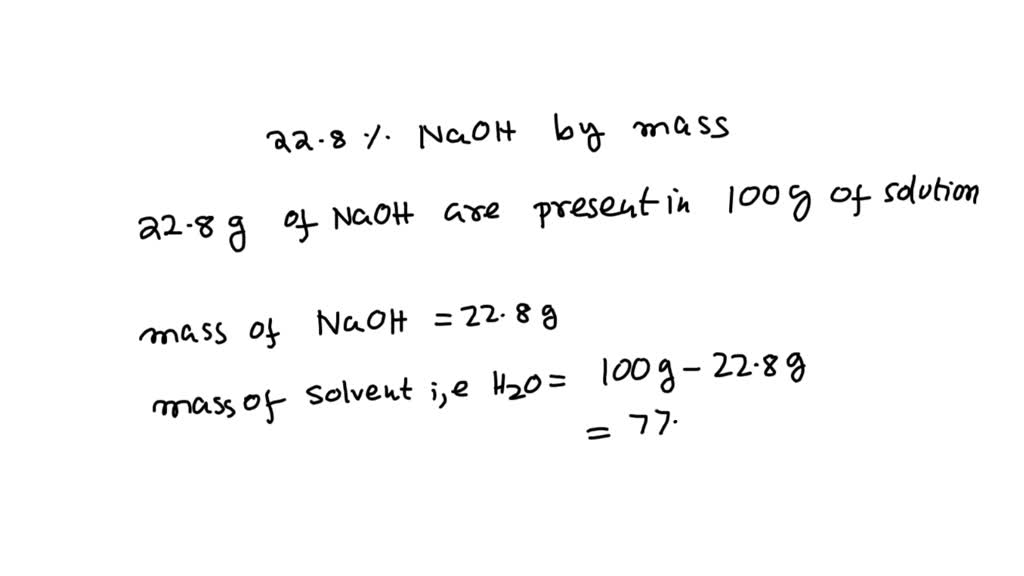 22.8 % NaOH by mass
22.8 g of NaOH are present in 100 g of solution
mass of NaOH = 22.8 g
mass of solvent i,e H2O = 100 g - 22.8 g
= 77.